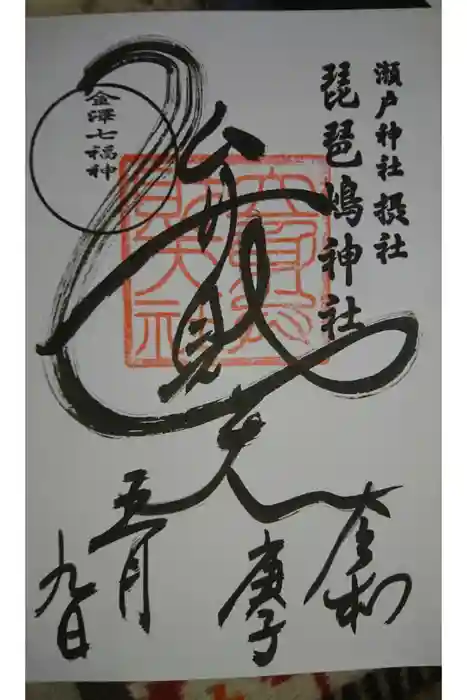 瀬戸神社 摂社
琵琶嶋神社
弁財天
金澤七福神
令和
庚子
五月
九日